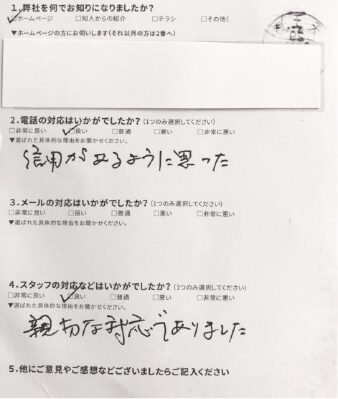 1.弊社を何でお知りになりましたか?
☑ホームページ □知人からの紹介 □チラシ □その他(
▼ホームページの方にお伺いします(それ以外の方は2番へ)
2.電話の対応はいかがでしたか?(1つのみ選択してください)
□非常に良い ☑良い □普通 □悪い □非常に悪い
▼選ばれた具体的な理由をお聞かせください。
信用があるように思った
3.メールの対応はいかがでしたか?(1つのみ選択してください)
□非常に良い □良い □普通 □悪い □非常に悪い
▼選ばれた具体的な理由をお聞かせください。
4.スタッフの対応などはいかがでしたか?(1つのみ選択してください)
□非常に良い ☑良い □普通 □悪い □非常に悪い
▼選ばれた具体的な理由をお聞かせください。
親切な対応でありました
5.他にご意見やご感想などございましたらご記入ください